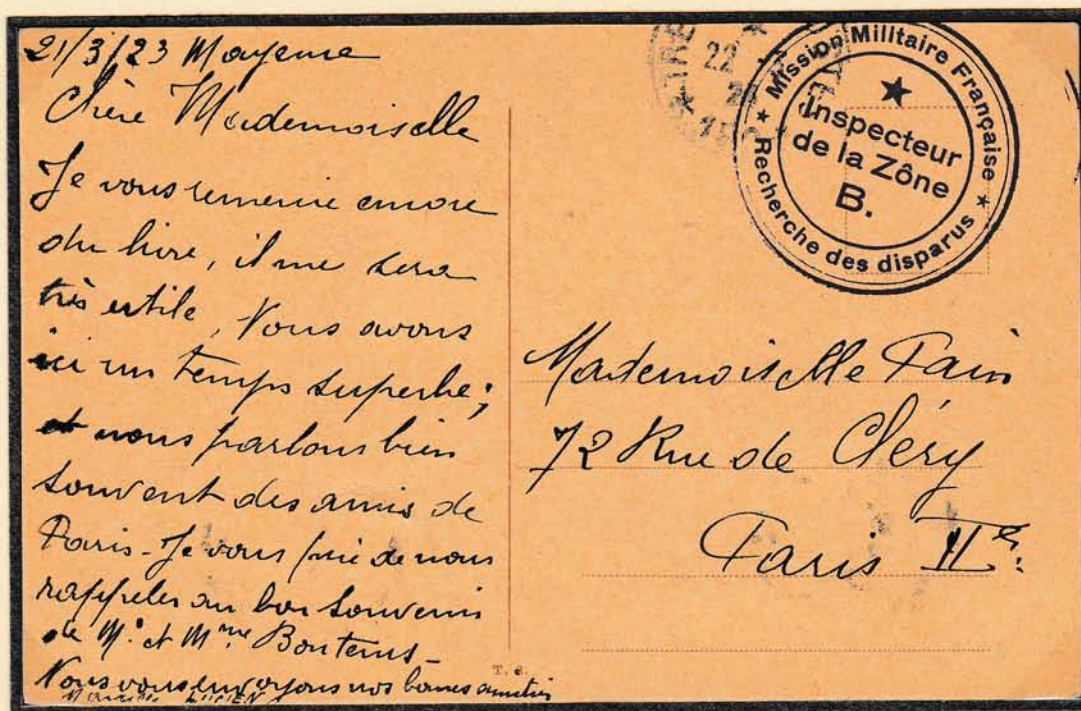 21/3/23 Mayence
Chère Mademoiselle
Je vous remercie encore
du livre, il me sera
très utile, Nous avons
ici un temps superbe;
et nous parlons bien
souvent des amis de
Paris - Je vous prie de nous
rappeler au bon souvenir
de Mr. et Mme Boutems -
Nous vous envoyons nos bonnes amitiés
LUCIEN
22
Mission Militaire Française
Inspecteur
de la Zône
B.
Recherche des disparus
Mademoiselle Pain
72 Rue de Cléry
Paris IIe.